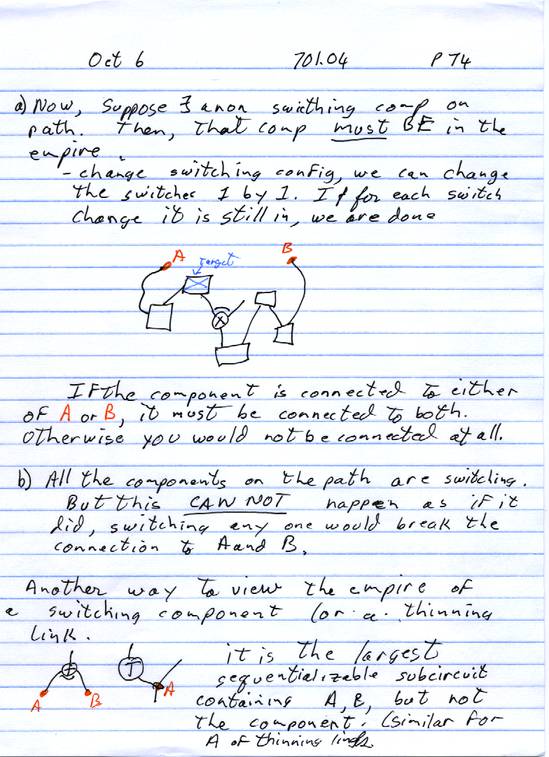 Oct 6 701.04 P 74
a) Now, Suppose ∃ a non swithing comp on
path. Then, That comp must BE in the
empire.
- change switching config, we can change
the switches 1 by 1. If for each switch
change it is still in, we are done
A B
Target
X
If the component is connected to either
of A or B, it must be connected to both.
Otherwise you would not be connected at all.
b) All the components on the path are switching.
But this CAN NOT happen as if it
did, switching any one would break the
connection to A and B.
Another way to view the empire of
a switching component (or a thinning
link.
it is the largest
sequentializable subcircuit
containing A, B, but not
the component. (similar for
A of thinning links
A B
T A